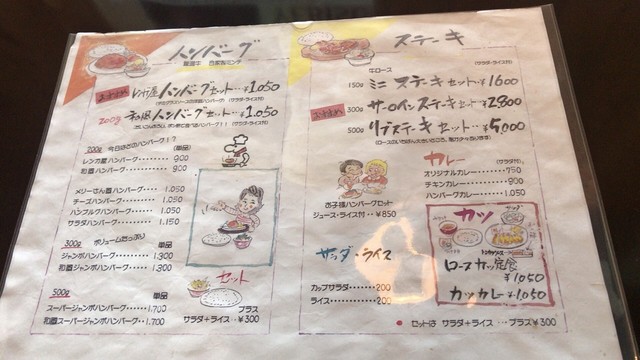 ハンバーグ
おすすめ レンガ屋ハンバーグセット‥¥1050
(サラダ・ライス付)
200g 和風ハンバーグセット‥¥1.050
(サラダ・ライス付)
200g 今日はどのハンバーグ!? 単品
レンガ屋ハンバーグ‥‥‥ 900
和風ハンバーグ‥‥‥ 900
メリーさん風ハンバーグ‥‥ 1.050
チーズハンバーグ‥‥ 1.050
ハンブルグハンバーグ‥‥ 1.050
サラダハンバーグ‥‥ 1.150
300g ボリュームたっぷり 単品
ジャンボハンバーグ‥‥ 1.300
和風ジャンボハンバーグ‥‥ 1.300
500g 単品
スーパージャンボハンバーグ‥‥ 1.700
和風スーパージャンボハンバーグ‥ 1.700
セット
プラス
サラダ+ライス‥‥¥300
ステーキ
牛ロース (サラダ・ライス付)
150g ミニステーキセット‥¥1600
おすすめ 300g サーロインステーキセット‥¥2800
500g リブステーキセット‥¥5,000
お子様ハンバーグセット
ジュース・ライス付‥¥850
カレー (サラダ付)
オリジナルカレー‥‥ 750
チキンカレー‥‥ 900
ハンバーグカレー‥‥ 1.050
カツ
ロースカツ定食
¥1050
カツカレー¥1,050
サラダ・ライス
カップサラダ‥‥ 200
ライス‥‥ 200
● セットは サラダ+ライス‥‥プラス¥300